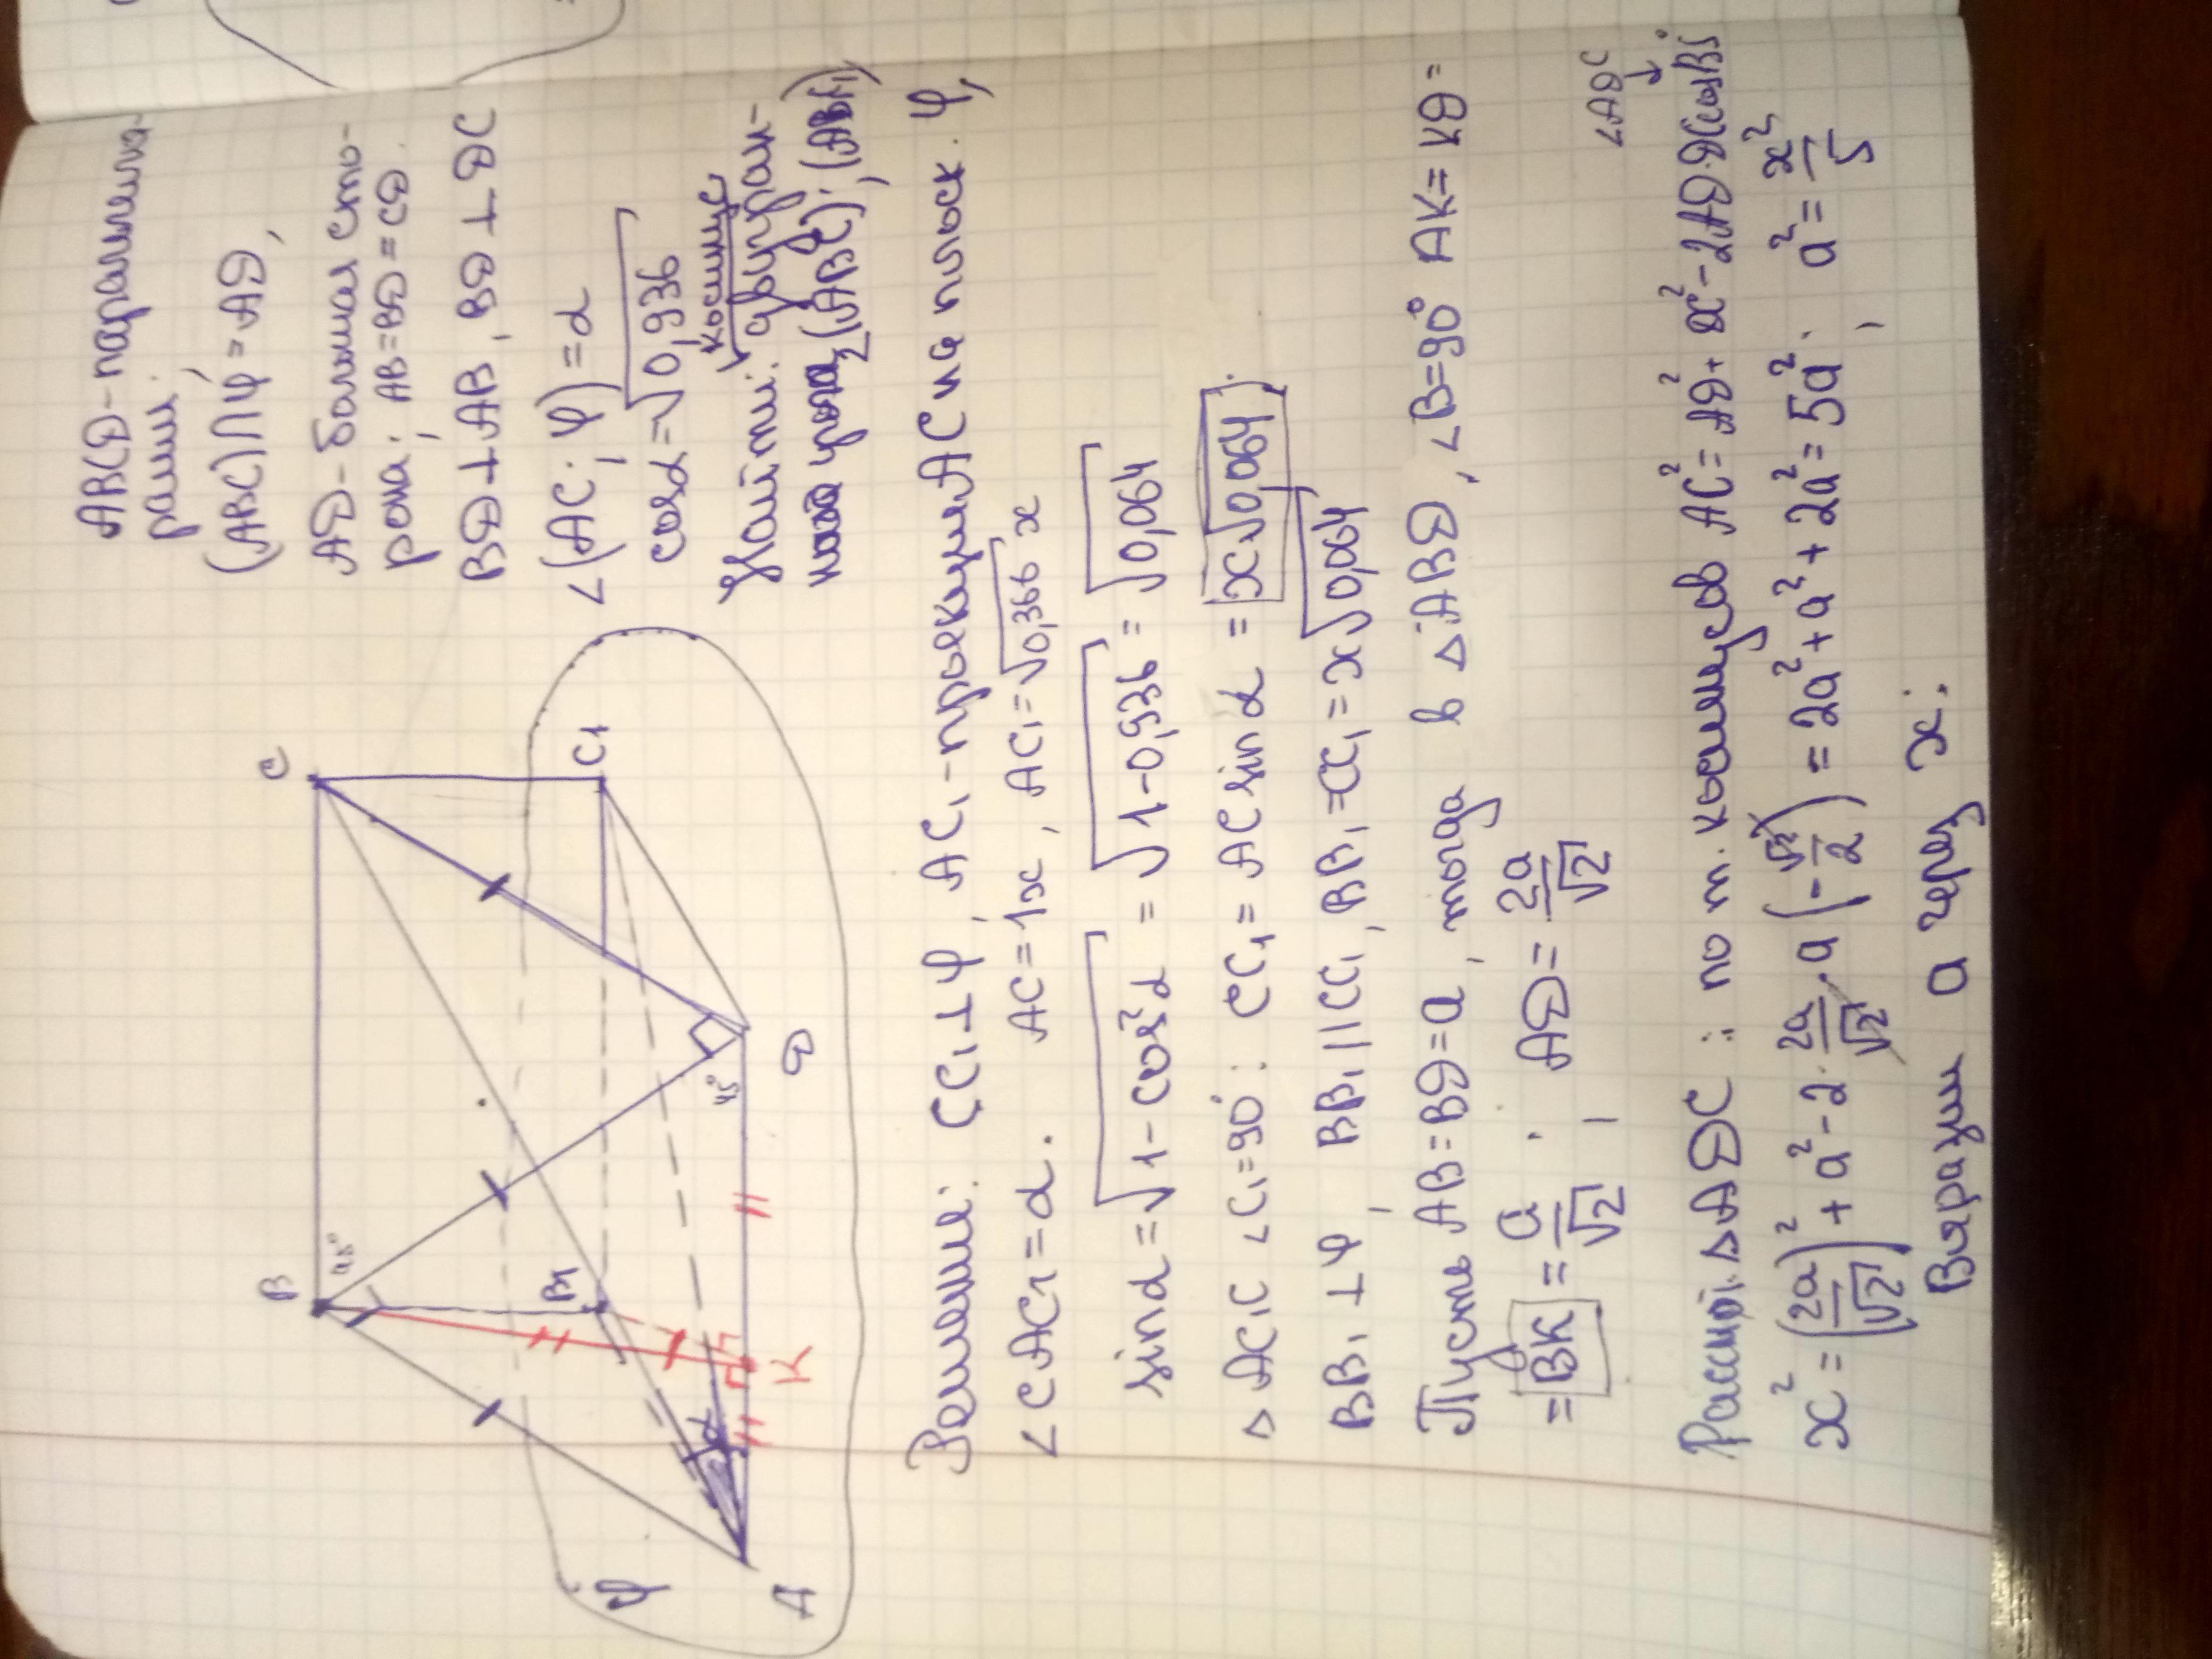 ABCD - параллелограмм.
(ABC)∩φ = AD,
AD - большая сторона; AB = BD = CD.
BD ⊥ AB, BD ⊥ DC
∠(AC; φ) = α
cosα = √0,936
косинус
Найти: двугранного угла (ABC); (AB₁)
B
C
45°
B₁
C₁
φ
α
45°
A
K
D
Решение: CC₁ ⊥ φ, AC₁ - проекция AC на плоск. φ,
∠CAC₁ = α. AC = 1x, AC₁ = √0,366 x
sinα = √1 - cos²α = √1 - 0,936 = √0,064
△ AC₁C ∠C₁ = 90°: CC₁ = AC sinα = x√0,064.
BB₁ ⊥ φ, BB₁ || CC₁, BB₁ = CC₁ = x√0,064
Пусть AB = BD = a, тогда в △ABD, ∠B = 90° AK = KD =
= BK = a/√2, AD = 2a/√2
∠ADC ↓
Рассм. △ADC: по т. косинусов AC² = AD² + DC² - 2AD·DCcos135°
x² = (2a/√2)² + a² - 2·2a/√2·a(-√2/2) = 2a² + a² + 2a² = 5a²; a² = x²/5
Выразим a через x: